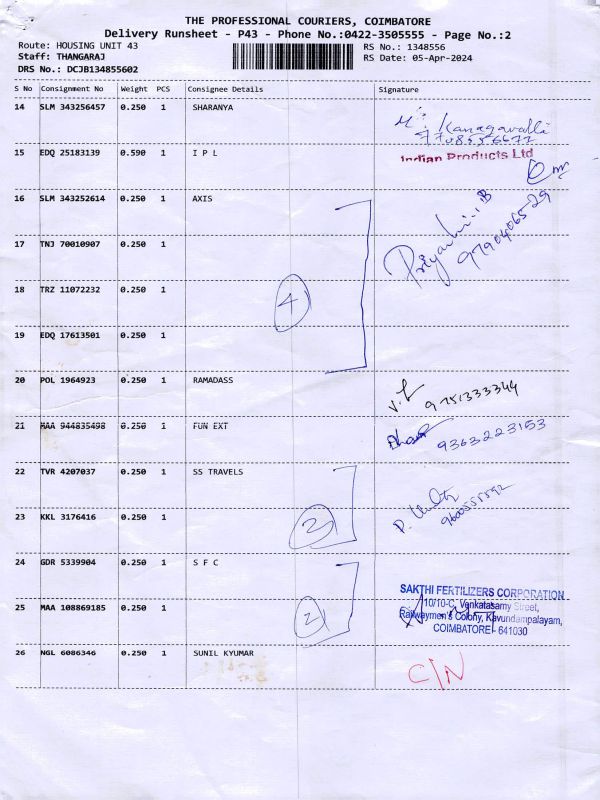 THE PROFESSIONAL COURIERS, COIMBATORE
Delivery Runsheet - P43 - Phone No.:0422-3505555 - Page No.:2
Route: HOUSING UNIT 43 RS No.: 1348556
Staff: THANGARAJ RS Date: 05-Apr-2024
DRS No.: DCJB134855602
S No Consignment No Weight PCS Consignee Details Signature
14 SLM 343256457 0.250 1 SHARANYA
Kanagavalli
15 EDQ 25183139 0.590 1 I P L Indian Products Ltd
16 SLM 343252614 0.250 1 AXIS
9790406529
17 TNJ 70010907 0.250 1
18 TRZ 11072232 0.250 1
4
19 EDQ 17613501 0.250 1
20 POL 1964923 0.250 1 RAMADASS
9751333344
21 MAA 944835498 0.250 1 FUN EXT
9363223153
22 TVR 4207037 0.250 1 SS TRAVELS
23 KKL 3176416 0.250 1 2
24 GDR 5339904 0.250 1 S F C
SAKTHI FERTILIZERS CORPORATION
25 MAA 108869185 0.250 1 10/10-C, Venkatasamy Street,
2 Railwaymen's Colony, Kavundampalayam,
COIMBATORE - 641030
26 NGL 6086346 0.250 1 SUNIL KYUMAR
C/N